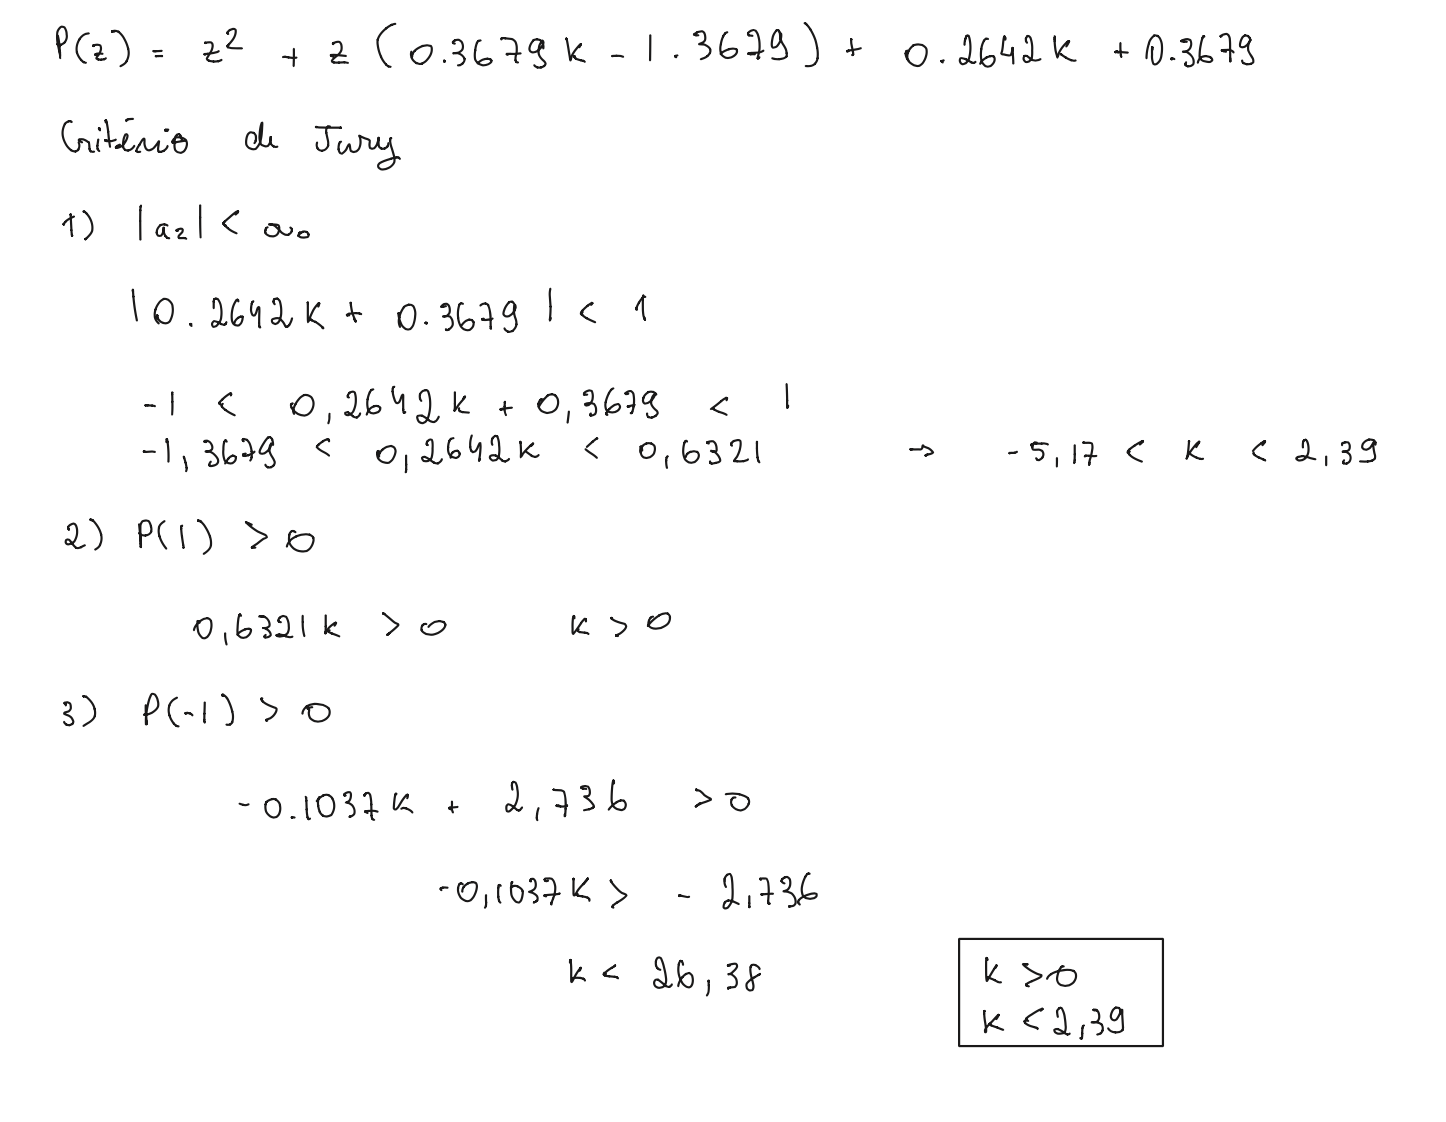 P(z) = z² + z (0.3679 k - 1.3679) + 0.2642k + 0.3679
Critério de Jury
1) |a₂| < a₀
|0.2642k + 0.3679| < 1
-1 < 0,2642k + 0,3679 < 1
-1,3679 < 0,2642k < 0,6321 → -5,17 < k < 2,39
2) P(1) > 0
0,6321k > 0 k > 0
3) P(-1) > 0
-0.1037k + 2,736 > 0
-0,1037k > - 2,736
k < 26,38
k > 0
k < 2,39